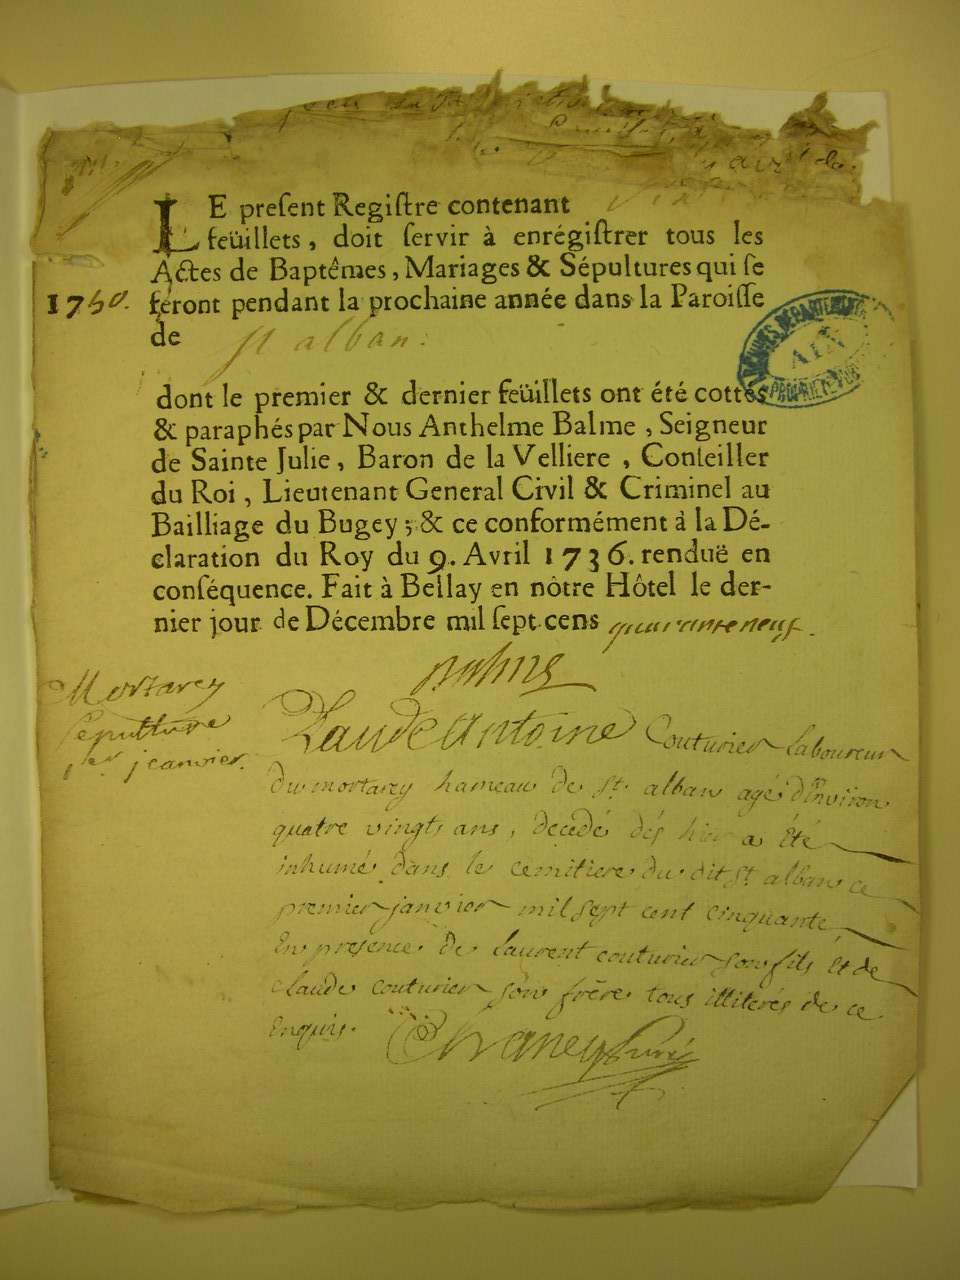 LE preſent Regiſtre contenant
feüillets, doit ſervir à enrégiſtrer tous les
Actes de Baptêmes, Mariages & Sépultures qui ſe
1750. feront pendant la prochaine année dans la Paroiſſe
de st alban.
dont le premier & dernier feüillets ont été cottés
& paraphés par Nous Anthelme Balme, Seigneur
de Sainte Julie, Baron de la Velliere, Conſeiller
du Roi, Lieutenant General Civil & Criminel au
Bailliage du Bugey; & ce conformément à la Dé-
claration du Roy du 9. Avril 1736. renduë en
conſéquence. Fait à Bellay en nôtre Hôtel le der-
nier jour de Décembre mil ſept cens quaranteneuf.
Balme
Mortarey
sepulture
1er jeanvier.
Claude Antoine Couturier laboureur
du mortarey hameau de St. alban agé d'Environ
quatre vingts ans, decedé dés hier a été
inhumé dans le cemitiere du dit St alban ce
premier janvier mil sept cent cinquante
En presence de laurent couturier son fils et de
claude couturier son frere tous illiterés de ce
Enquis.
Curé
ARCHIVES DÉPARTEMENTALES
AIN
PROPRIÉTÉ PUBLIQUE